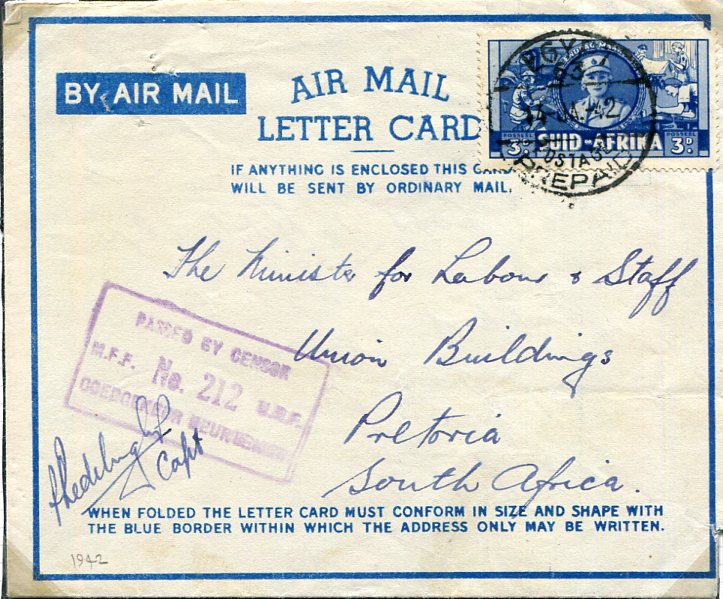 BY AIR MAIL
AIR MAIL
LETTER CARD
IF ANYTHING IS ENCLOSED THIS CARD
WILL BE SENT BY ORDINARY MAIL.
3D SUID-AFRIKA 3D
14 JA 42
POSTAGE
PREPAID
The Minister for Labour & Staff
Union Buildings
Pretoria
South Africa.
PASSED BY CENSOR
M.F.F. No. 212 U.D.F.
GOEDGEKEUR DEUR SENSOR
Capt
WHEN FOLDED THE LETTER CARD MUST CONFORM IN SIZE AND SHAPE WITH
THE BLUE BORDER WITHIN WHICH THE ADDRESS ONLY MAY BE WRITTEN.
1942